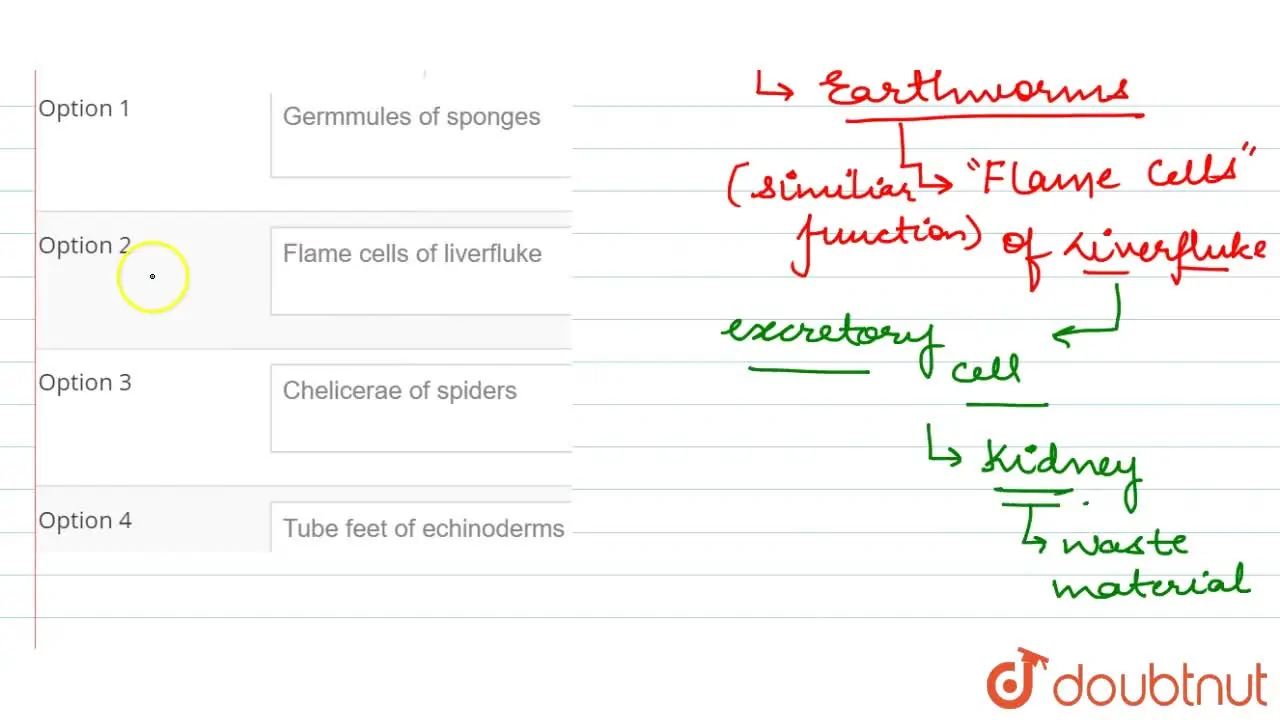 Option 1
Germmules of sponges
Option 2
Flame cells of liverfluke
Option 3
Chelicerae of spiders
Option 4
Tube feet of echinoderms
↳ Earthworms
(similiar ↳ "Flame Cells"
function) of Liverfluke
excretory
cell
↳ Kidney
↳ waste
material
doubtnut